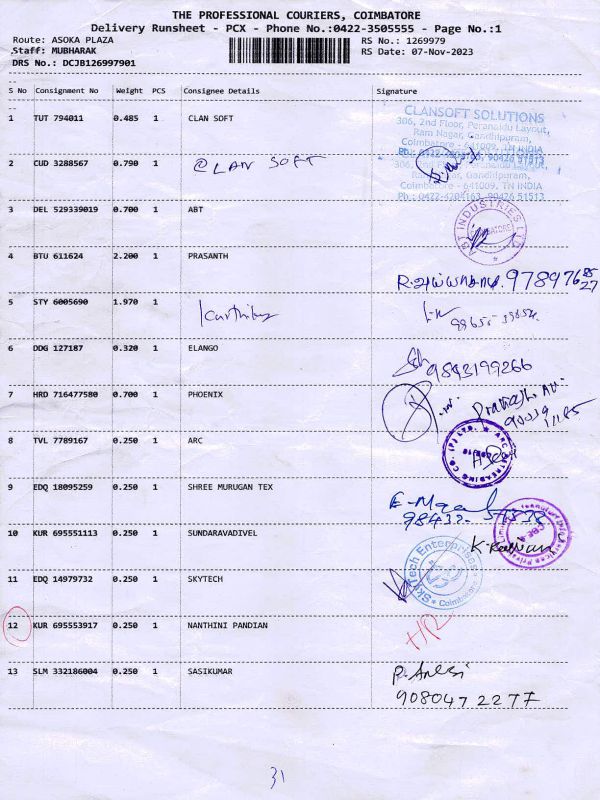 THE PROFESSIONAL COURIERS, COIMBATORE
Delivery Runsheet - PCX - Phone No.:0422-3505555 - Page No.:1
Route: ASOKA PLAZA RS No.: 1269979
Staff: MUBHARAK RS Date: 07-Nov-2023
DRS No.: DCJB126997901
S No Consignment No Weight PCS Consignee Details Signature
1 TUT 794011 0.485 1 CLAN SOFT
CLANSOFT SOLUTIONS
306, 2nd Floor, Peranaidu Layout,
Ram Nagar, Gandhipuram,
Coimbatore - 641009. TN INDIA
2 CUD 3288567 0.790 1 CLAN SOFT
Coimbatore - 641009, TN INDIA
Ph.: 0422-4204163, 90426 51513
3 DEL 529339019 0.700 1 ABT
ABT INDUSTRIES LTD
4 BTU 611624 2.200 1 PRASANTH
5 STY 6005690 1.970 1 Karthikey
6 DDG 127187 0.320 1 ELANGO
9843199266
7 HRD 716477580 0.700 1 PHOENIX
8 TVL 7789167 0.250 1 ARC
9 EDQ 18095259 0.250 1 SHREE MURUGAN TEX
10 KUR 695551113 0.250 1 SUNDARAVADIVEL
11 EDQ 14979732 0.250 1 SKYTECH
SkyTech Enterprises
Coimbatore
12 KUR 695553917 0.250 1 NANTHINI PANDIAN
13 SLM 332186004 0.250 1 SASIKUMAR
9080472277
31